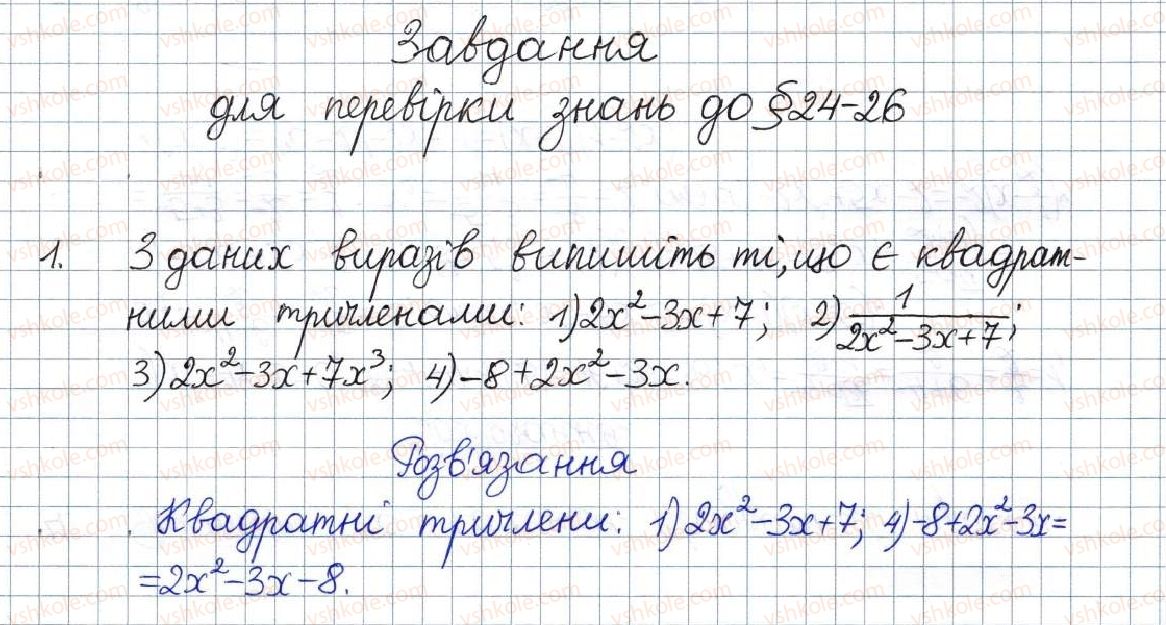 Завдання
для перевірки знань до §24-26
1. З даних виразів випишіть ті, що є квадрат-
ними тричленами: 1) 2x²-3x+7; 2) 1/(2x²-3x+7);
3) 2x²-3x+7x³; 4) -8+2x²-3x.
Розв'язання
Квадратні тричлени: 1) 2x²-3x+7; 4) -8+2x²-3x=
=2x²-3x-8.